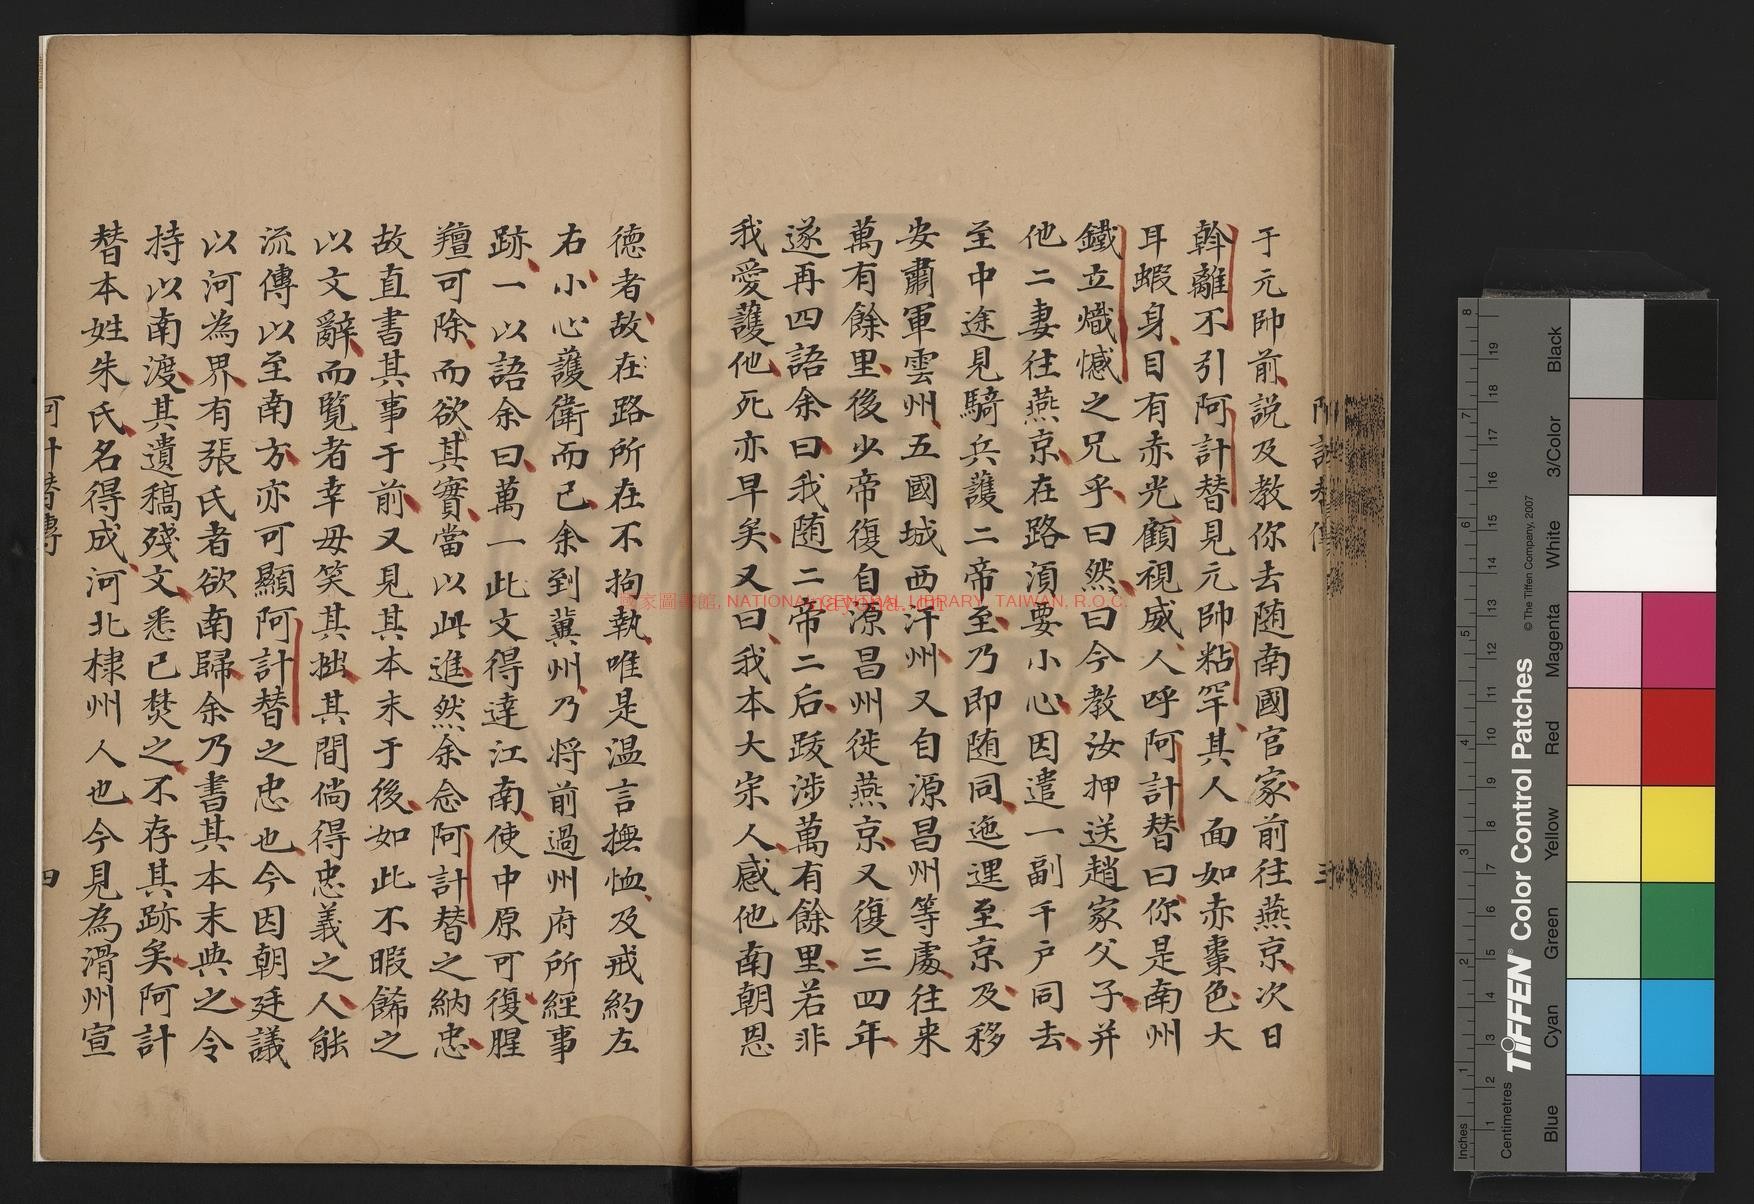 于元帥前說及教你去随南國官家前往燕京次日
斡離不引阿計替見元帥粘罕其人面如赤棗色大
耳蝦身目有赤光顧視威人呼阿計替曰你是南州
鐵立熾憾之兄乎曰然曰今教汝押送趙家父子并
他二妻往燕京在路湏要小心因遣一副千户同去
至中途見騎兵護二帝至乃即随同迤邐至京及移
安肅軍雲州五國城西汗州又自源昌州等處往来
萬有餘里後少帝復自源昌州徙燕京又復三四年
遂再四語余曰我随二帝二后跋涉萬有餘里若非
我愛護他死亦早矣又曰我本大宋人感他南朝恩
德者故在路所在不拘執唯是温言撫恤及戒約左
右小心護衛而已余到冀州乃將前過州府所經事
跡一以語余曰萬一此文得達江南使中原可復腥
羶可除而欲其實當以此進然余念阿計替之納忠
故直書其事于前又見其本末于後如此不暇餙之
以文辭而覧者幸毋笑其拙其間倘得忠義之人能
流傳以至南方亦可顯阿計替之忠也今因朝廷議
以河為界有張氏者欲南歸余乃書其本末典之令
持以南渡其遺稿殘文悉已焚之不存其跡矣阿計
替本姓朱氏名得成河北棣州人也今見為滑州宣
阿計替傳
四
三
國家圖書館, NATIONAL CENTRAL LIBRARY, TAIWAN, R.O.C.
TIFFEN® Color Control Patches
© The Tiffen Company, 2007
Inches
Centimetres
Blue
Cyan
Green
Yellow
Red
Magenta
White
3/Color
Black